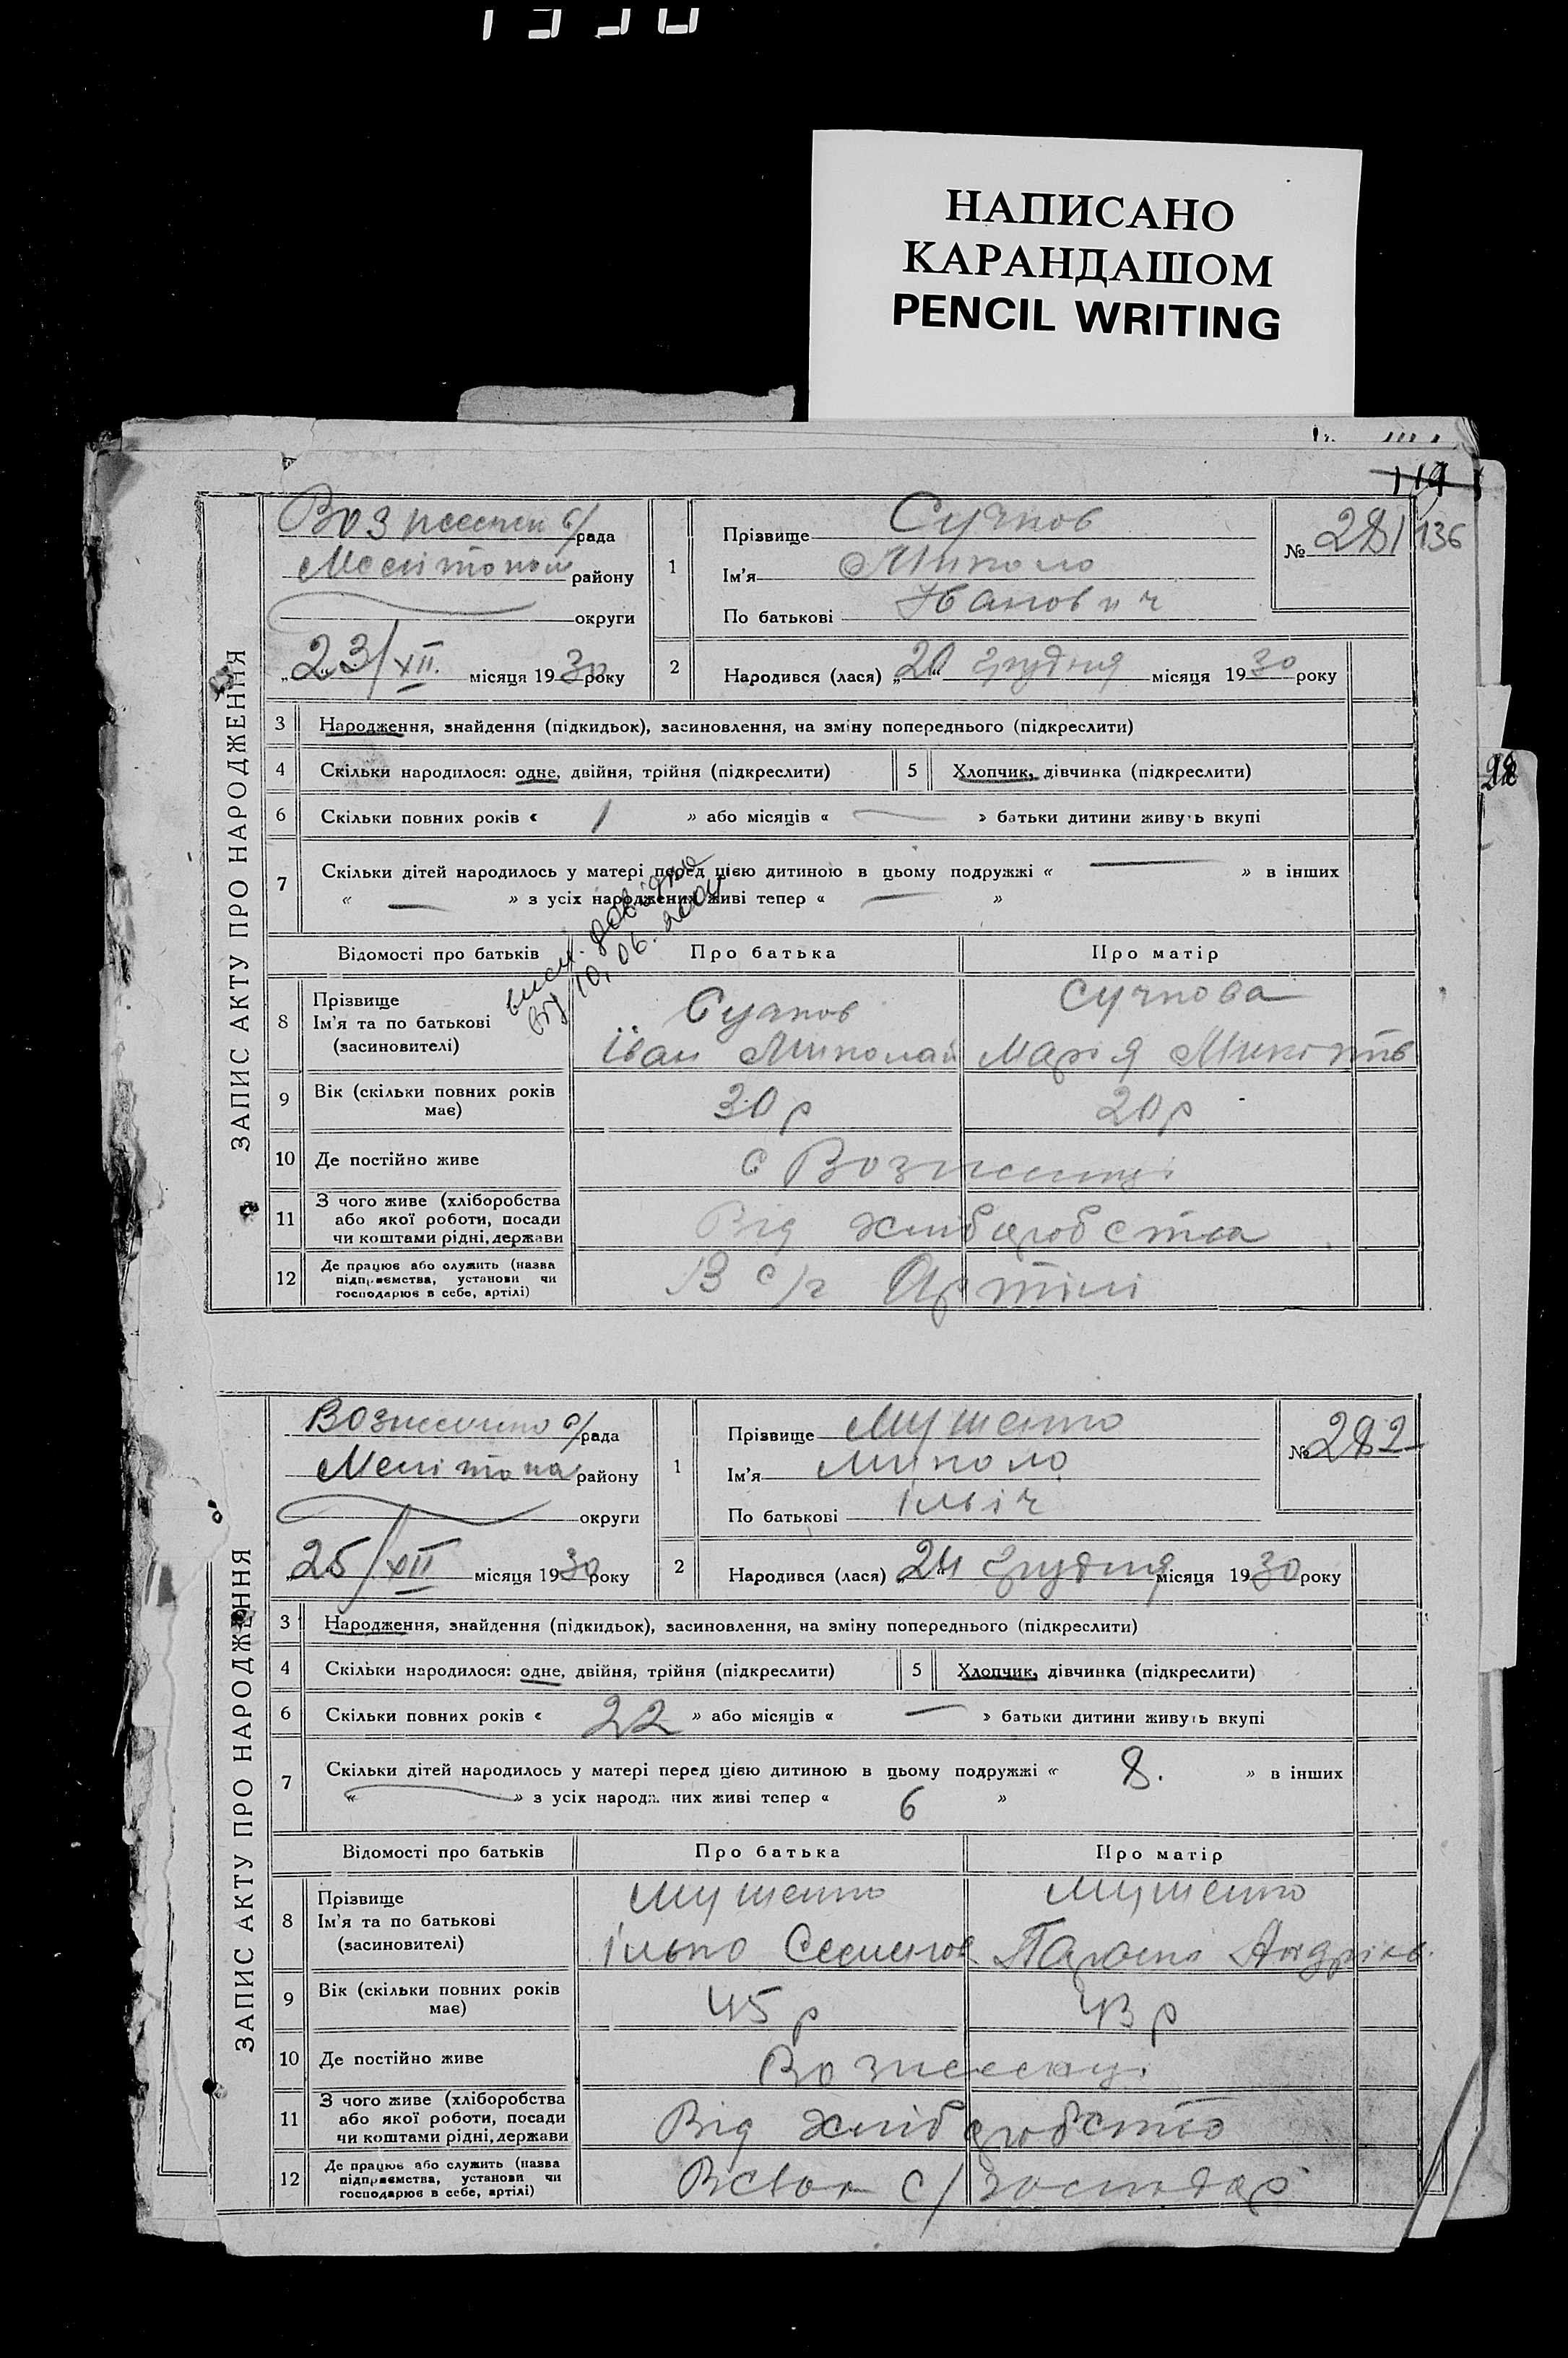 НАПИСАНО
КАРАНДАШОМ
PENCIL WRITING
119
136
ЗАПИС АКТУ ПРО НАРОДЖЕННЯ
с/рада
району
округи
23/XII. місяця 1930 року
1
Прізвище Сучков
Ім'я Миколо
По батькові Іванович
№ 281
2
Народився (лася) „20“ грудня місяця 1930 року
3 Народження, знайдення (підкидьок), засиновлення, на зміну попереднього (підкреслити)
4 Скільки народилося: одне, двійня, трійня (підкреслити)
5 Хлопчик, дівчинка (підкреслити)
6 Скільки повних років « 1 » або місяців « — » батьки дитини живуть вкупі
7 Скільки дітей народилось у матері перед цією дитиною в цьому подружжі « — » в інших
« — » з усіх народжених живі тепер « — »
від 10.06.
Відомості про батьків Про батька Про матір
8 Прізвище
Ім'я та по батькові
(засновителі)
Сучков
Іван Миколай
Сучкова
Марія Микитів
9 Вік (скільки повних років має) 30 р 20 р
10 Де постійно живе с Вознесенці
11 З чого живе (хліборобства
або якої роботи, посади
чи коштами рідні, держави
Від хліборобства
12 Де працює або служить (назва
підприємства, установи чи
господарює в себе, артілі)
В с/г Артілі
ЗАПИС АКТУ ПРО НАРОДЖЕННЯ
с/рада
Мелітопа району
округи
25/XII місяця 1930 року
1
Прізвище Мушенко
Ім'я Миколо
По батькові Ілліч
№ 282
2
Народився (лася) „24 грудня місяця 1930 року
3 Народження, знайдення (підкидьок), засиновлення, на зміну попереднього (підкреслити)
4 Скільки народилося: одне, двійня, трійня (підкреслити)
5 Хлопчик, дівчинка (підкреслити)
6 Скільки повних років « 22 » або місяців « — » батьки дитини живуть вкупі
7 Скільки дітей народилось у матері перед цією дитиною в цьому подружжі « 8. » в інших
« — » з усіх народжених живі тепер « 6 »
Відомості про батьків Про батька Про матір
8 Прізвище
Ім'я та по батькові
(засиновителі)
Мушенко
Ілько Семенов
Мушенко
Параска Андріїв.
9 Вік (скільки повних років має) 45 р 43 р
10 Де постійно живе Вознесенці
11 З чого живе (хліборобства
або якої роботи, посади
чи коштами рідні, держави
Від хліборобство
12 Де працює або служить (назва
підприємства, установи чи
господарює в себе, артілі)
В свом с/господар